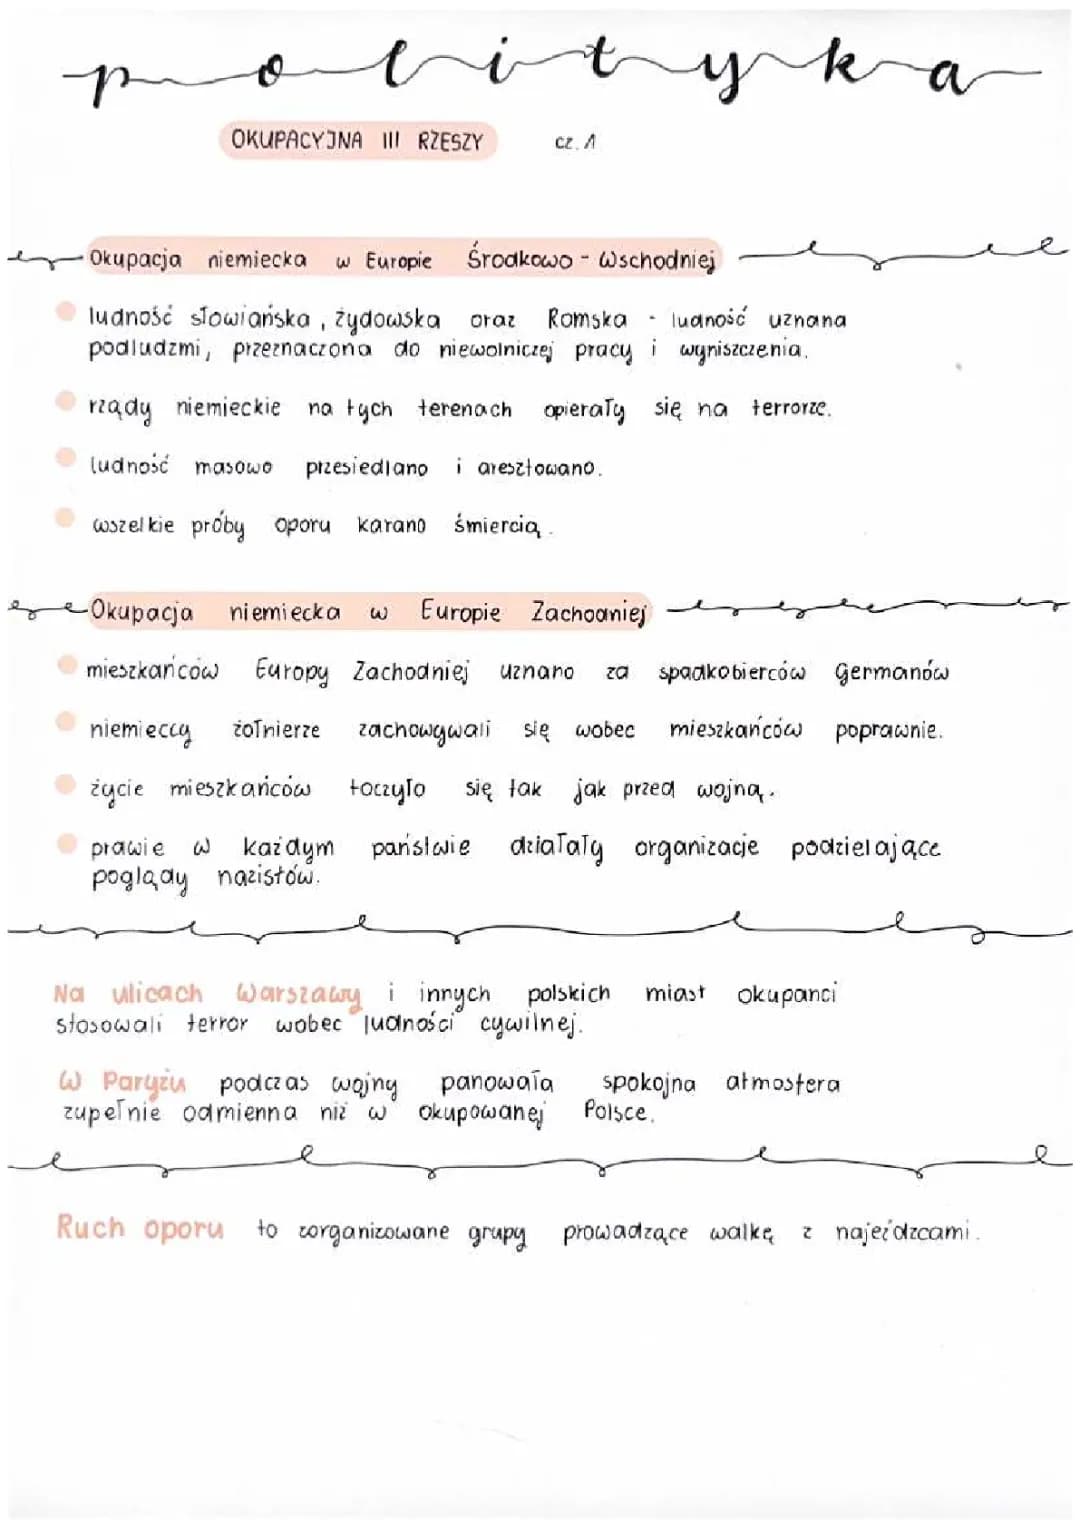 polityka
OKUPACYJNA III RZESZY cz. 1
Okupacja niemiecka w Europie Środkowo - Wschodniej
ludność słowiańska, żydowska oraz Romska - ludność uznana
podludzmi, przeznaczona do niewolniczej pracy i wyniszczenia.
rządy niemieckie na tych terenach opierały się na terrorze.
ludność masowo przesiedlano i aresztowano.
wszelkie próby oporu karano śmiercią.
Okupacja niemiecka w Europie Zachodniej
mieszkańców Europy Zachodniej uznano za spadkobierców Germanów
niemieccy żołnierze zachowywali się wobec mieszkańców poprawnie.
życie mieszkańców toczyło się tak jak przed wojną.
prawie w każdym państwie działały organizacje podzielające
poglądy nazistów.
Na ulicach Warszawy i innych polskich miast okupanci
stosowali terror wobec ludności cywilnej.
W Paryżu podczas wojny panowała spokojna atmosfera
zupełnie odmienna niż w okupowanej Polsce.
Ruch oporu to zorganizowane grupy prowadzące walkę z najeźdzcami.